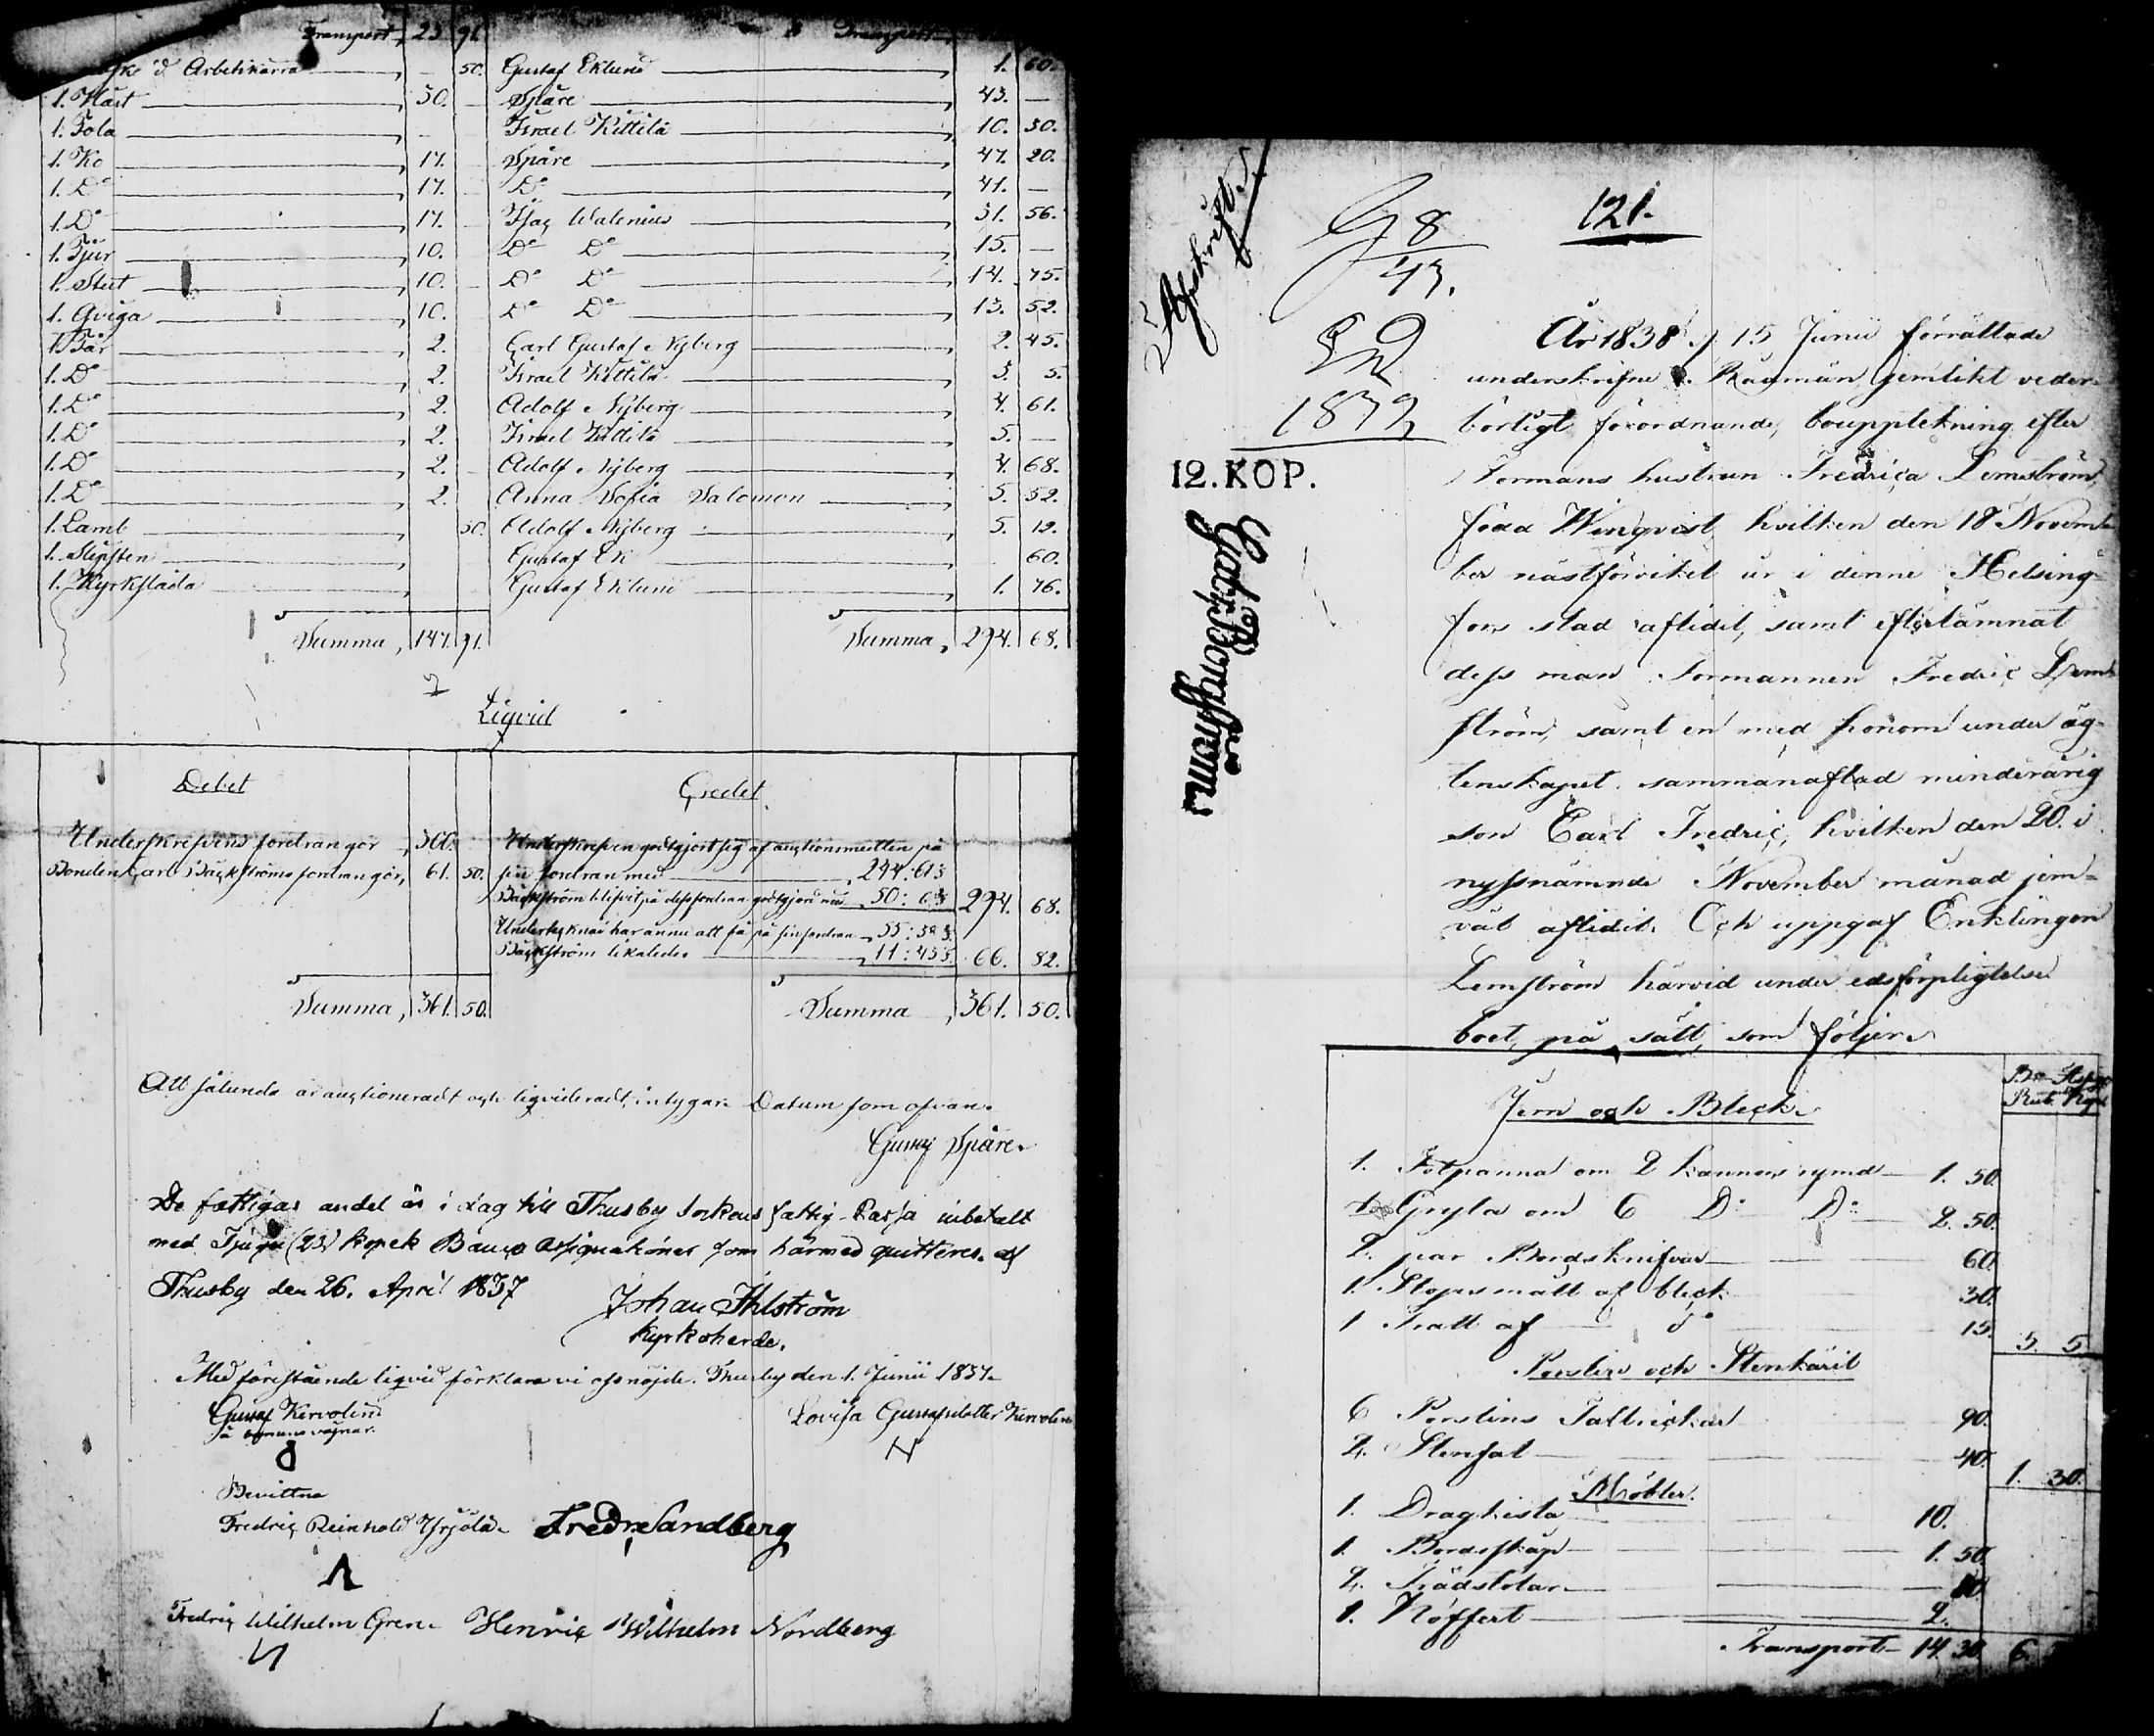 Transport, 23 91. Transport
Arbetskärra 50. Gustaf Eklund 1. 60.
1. Häst 30. Spåre 43. —
1. Fola — Israel Kittilä 10. 30.
1. Ko 17. Spåre 47. 20.
1. Do 17. Do 41. —
1. Do 17. Isac Walenius 31. 56.
1. Tjur 10. Do Do 15. —
1. Stut 10. Do Do 14. 75.
1. Qviga 10. Do Do 13. 52.
1 Får 2. Carl Gustaf Nyberg 2. 45.
1. Do 2. Israel Kittilä 3. 5.
1. Do 2. Adolf Nyberg 4. 61.
1. Do 2. Israel Kittilä 5. —
1. Do 2. Adolf Nyberg 4. 68.
1. Do 2. Anna Sofia Salomon 5. 52.
1. Lamb 50. Adolf Nyberg 5. 12.
1. Slipsten Gustaf Ek 60.
1. Kyrksläda Gustaf Eklund 1. 76.
Summa, 147. 91. Summa, 294. 68.
Liqvid
Debet Credet.
Underskrifvens fordran gör 300. Underskrifven godtgjort sig af auctionsmedlen på
Bonden Carl Bäckströms fordran gör, 61. 50. sin fordran med 244: 61
Bäckström blifvit på dess fordran godtgjord med 50: 6 294. 68.
Undertecknad har ännu att få på sin fordran 55: 38
Bäckström likaledes 11: 43 66. 82.
Summa, 361. 50. Summa, 361. 50.
Att sålunda är auctioneradt och liqvideradt, intygar. Datum som ofvan.
Gustaf Spåre.
De fattigas andel är i dag till Thusby Sockens fattig-Kassa inbetalt
med Tjugu (23) kopek Banco Assignationer som härmed qvitteres. af
Thusby den 26. April 1837
Johan Ihlström
Kyrkoherde.
Med förestående liqvid förklara vi oss nöjde. Thusby den 1. Junii 1837.
Gustaf Kervolin Lovisa Gustafsdotter Kervolin
på omyndigas vägnar.
Bevittna
Fredric Reinhold Yrjölä. Fredr Sandberg
Fredric Wilhelm Gren. Henric Wilhelm Nordberg
Afskrift.
G 8
43.
1872
12. KOP.
121.
År 1838 d. 15 Junii förrättade
underskrifne Rådman, jemlikt veder-
börligt förordnande, bouppteckning efter
Formans hustrun Fredrica Lemström
född Winqvist, hvilken den 18 Novem-
ber nästförvikit år i denne Helsing-
fors stad aflidit, samt efterlämnat
dess man Formannen Fredric Lem-
ström, samt en med honom under äg-
tenskapet sammanaflad minderårig
son Carl Fredric, hvilken den 20. i
nyssnämnde November månad jem-
väl aflidit. Och uppgaf Enklingen
Lemström härvid under edsförpligtelse
boet, på sätt, som följer.
Bco Assign
Rub. Kop.
Jern och Bleck.
1. Fotpanna om 2 kannors rymd 1. 50.
1. Gryta om 6 Do Do 2. 50.
2. par Bordsknifvar 60.
1. Stopsmått af bleck 30.
1 Tratt af do 15. 5. 5.
Porslin och Stenkäril
6 Porslins Tallrickar 90.
2. Stenfat 40. 1. 30.
Möbler.
1. Dragkista 10.
1. Bordsskåp 1. 50.
2. Trädstolar 80.
1. Koffert 2.
Transport 14. 30. 6.